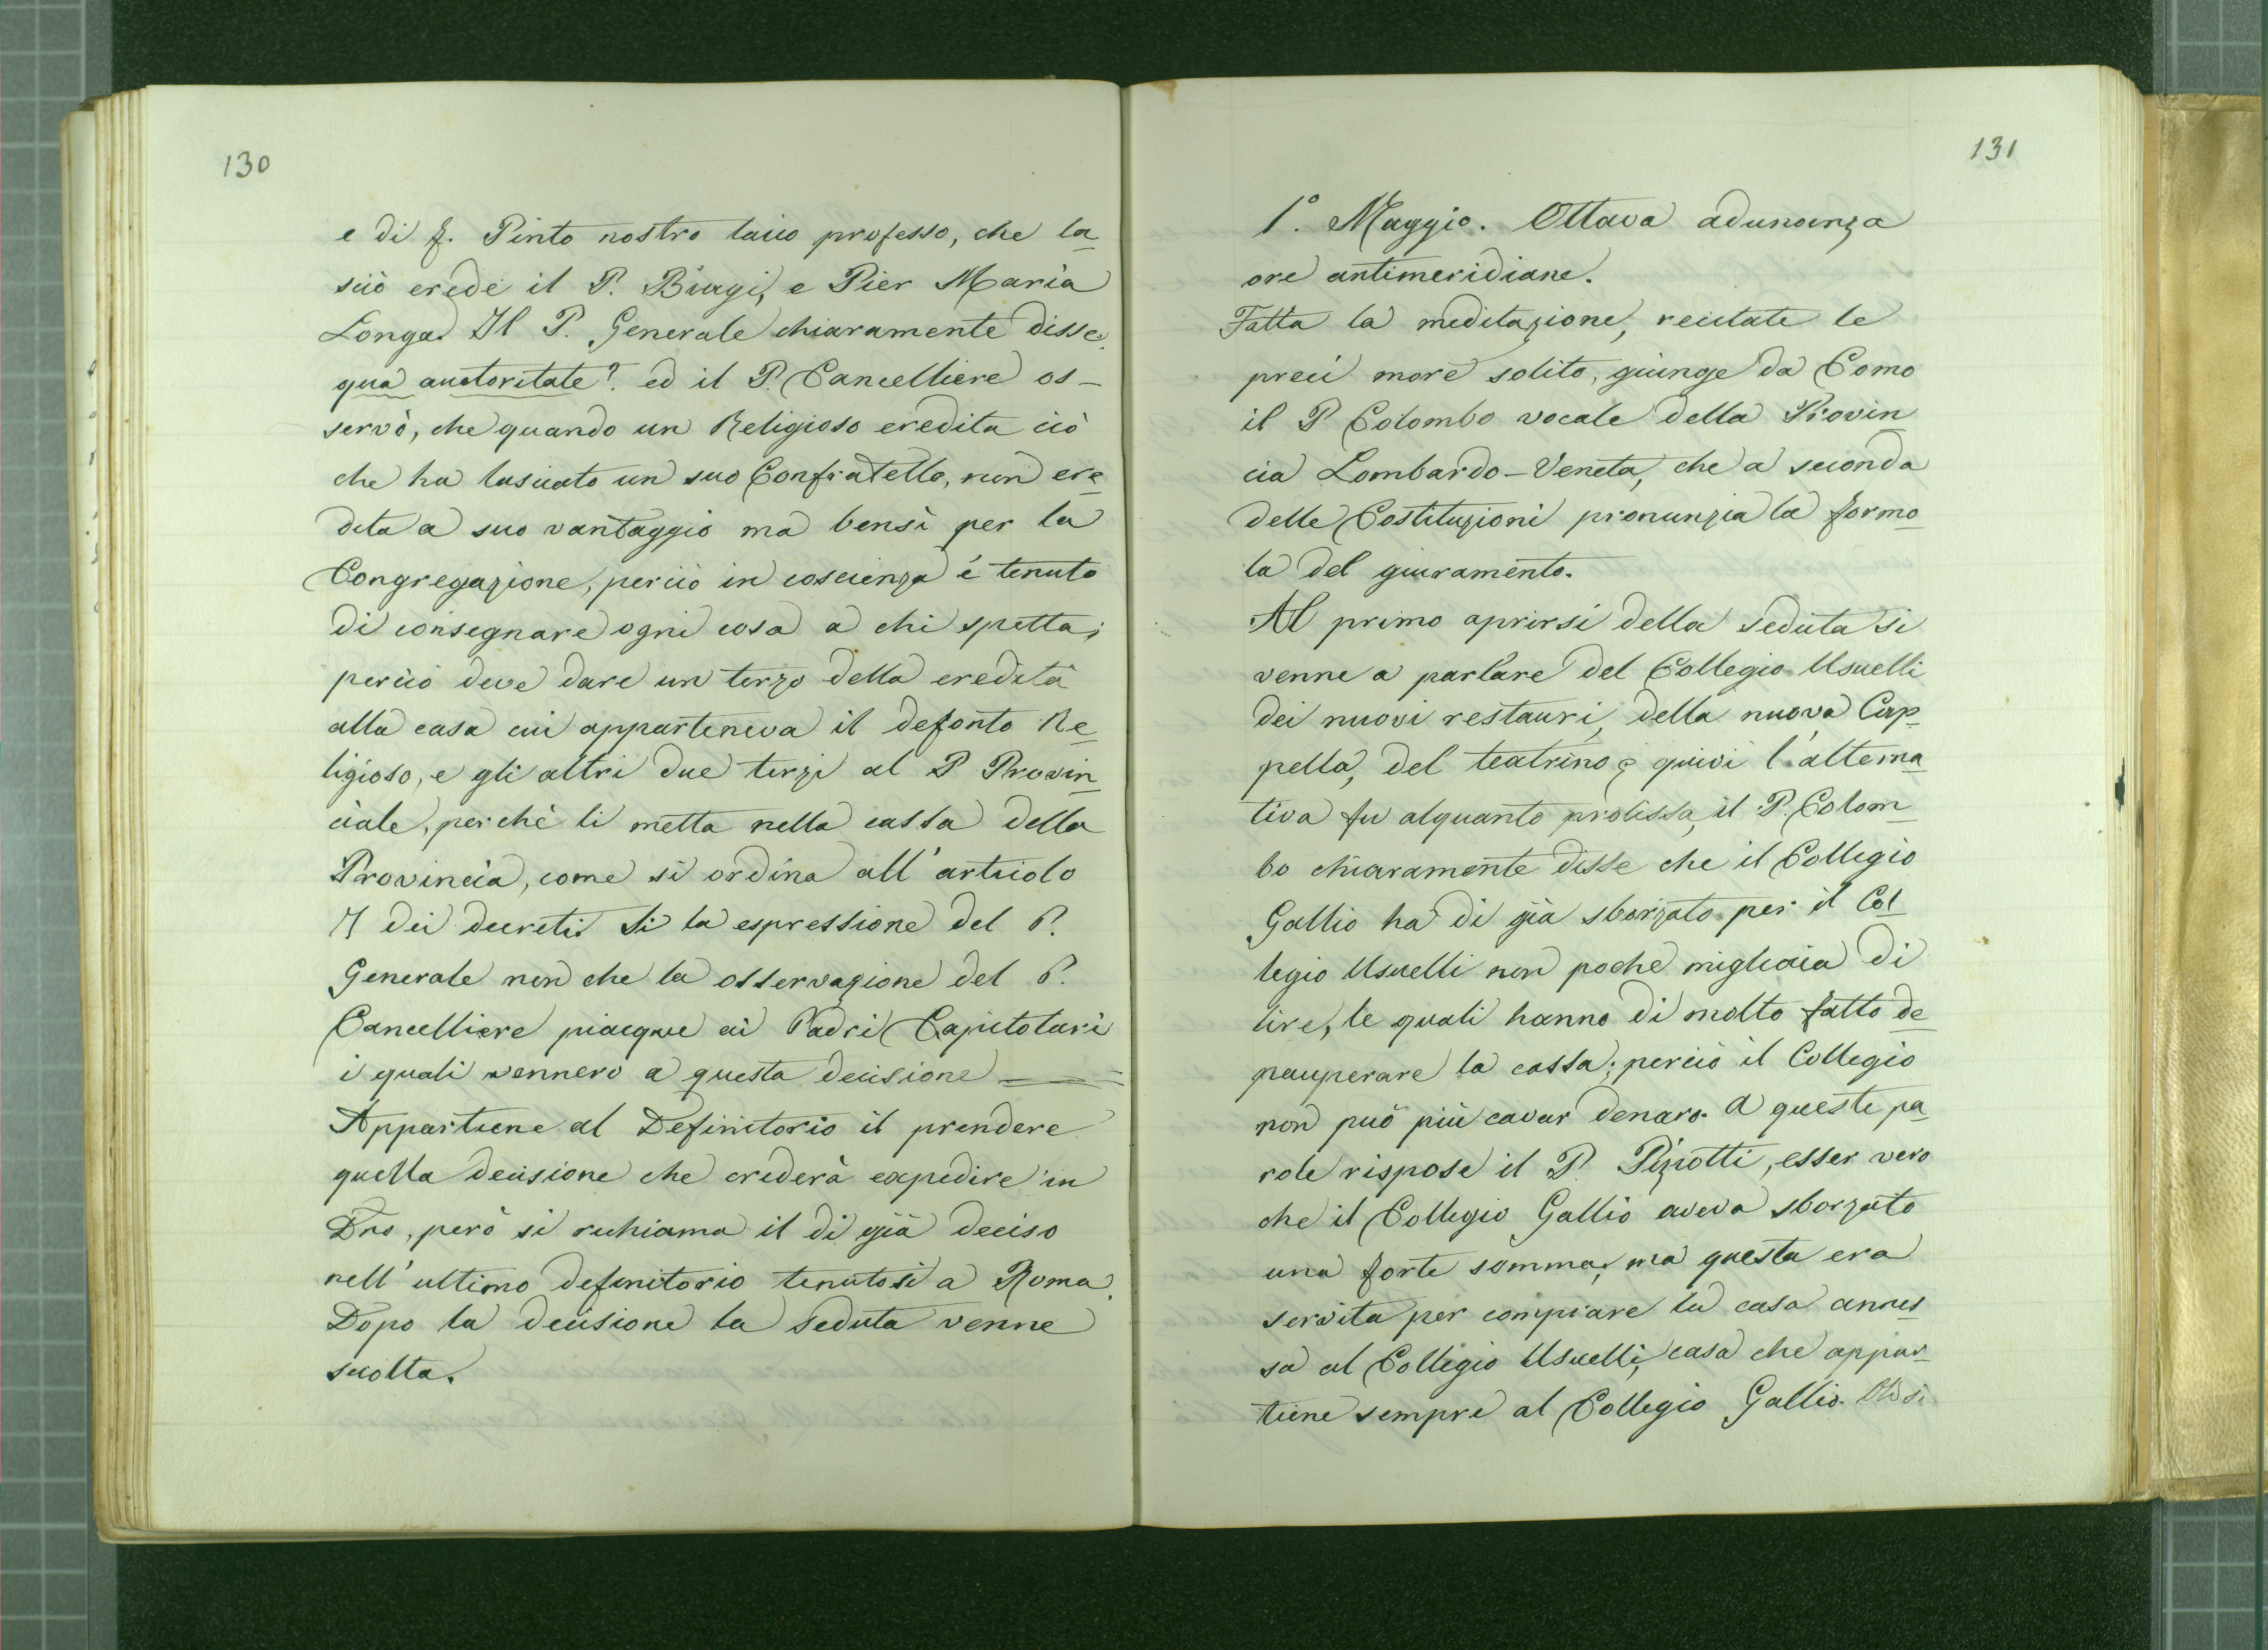 130
e di f. Pinto nostro laico professo, che la
sciò erede il P. Biagi, e Pier Maria
Longa. Il P. Generale chiaramente disse
qua auctoritate? ed il P. Cancelliere os-
servò, che quando un Religioso eredita ciò
che ha lasciato un suo Confratello, non ere
dita a suo vantaggio ma bensì per la
Congregazione, perciò in coscienza è tenuto
di consegnare ogni cosa a chi spetta;
perciò deve dare un terzo della eredità
alla casa cui apparteneva il defonto Re
ligioso, e gli altri due terzi al P Provin
ciale, perchè li metta nella cassa della
Provincia, come si ordina all'articolo
dei decreti. Sì la espressione del P.
Generale non che la osservazione del P.
Cancelliere piacque ai Padri Capitolari
i quali vennero a questa decisione =
Appartiene al Definitorio il prendere
quella decisione che crederà expedire in
Dno, però si richiama il di già deciso
nell'ultimo definitorio tenutosi a Roma.
Dopo la decisione la seduta venne
sciolta.
131
1.° Maggio. Ottava adunanza
ore antimeridiane.
Fatta la meditazione, recitate le
preci more solito, giunge da Como
il P Colombo vocale della Provin
cia Lombardo-Veneta, che a seconda
delle Costituzioni pronunzia la formo
la del giuramento.
Al primo aprirsi della seduta si
venne a parlare del Collegio Usuelli
dei nuovi restauri, della nuova Cap
pella, del teatrino e quivi l'alterna
tiva fu alquanto prolissa, il P. Colom
bo chiaramente disse che il Collegio
Gallio ha di già sborzato per il Col
legio Usuelli non poche migliaia di
lire, le quali hanno di molto fatto de
pauperare la cassa; perciò il Collegio
non può più cavar denaro. A queste pa
role rispose il P. Pizzotti, esser vero
che il Collegio Gallio aveva sborzato
una forte somma, ma questa era
servita per compiare la casa annes
sa al Collegio Usuelli, casa che appar
tiene sempre al Collegio Gallio.